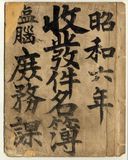 昭和六年
收發件名簿
塩腦庶務課